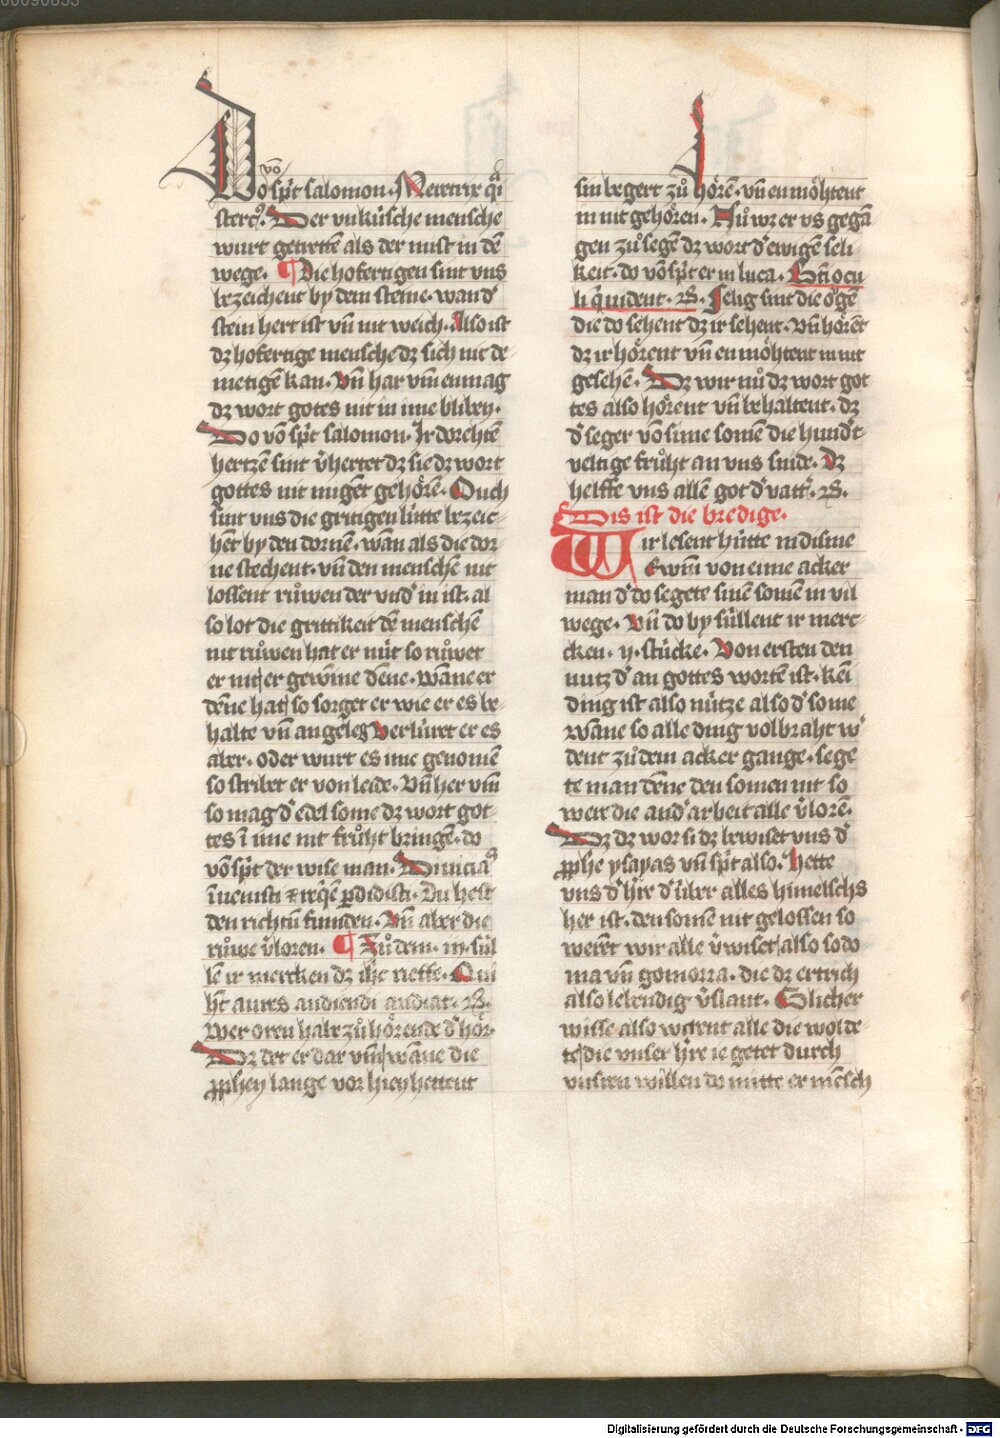 vō
Do sp͛t salomon. Meretrix q̄i
sterc⁹. Der vnkúsche mensche
wurt getretten als der mist in dē
wege. ¶ Die hofertigen sint vns
bezeichent by dem steine. wand͛
stein hert ist vn̄ nit weich. Also ist
dz hofertige mensche dz sich nit de-
metigē kan. Vn̄ har vm̄ en mag
dz wort gotes nit in ime bliben.
Do vō sp͛t salomon. Ir dorehtē
hertzē sint v͛hertet dz sie dz wort
gottes nit migēt gehörē. Ouch
sint vns die gritigen lútte bezeic-
hēt by den dornē. wan als die dor-
ne stechent. vn̄ den menschē nit
lossent růwen der vnd͛ in ist. al
so lot die grittikeit dē menschē
nit růwen hat er nút so růwet
er nit er gewīne dēne. wāne er
dēne hat so sorget er wie er es be-
halte vn̄ angeleg Verlúret er es
aber. oder wurt es ime genomē
so stirbet er von leide. Vn̄ her vm̄
so mag d͛ edel some dz wort got-
tes ī ime nit frůht bringē. do
vō sp͛t der wise man. Diuicias
īuenisti et req̄ē p̄didisti. Du hest
den richtū funden. Vn̄ aber die
růwe v͛loren. ¶ Zů dem. iij. súl
lē ir mercken dz ih̄c rieffe. Qui
h̄t aures audiendi audiat. B.
Wer oren habe zů hörende d͛ hör.
Dz det er dar vm̄ wāne die
pp̄hen lange vor hien hettent
sin begert zů hörē. vn̄ en möhtent
in nit gehören. Nů wz er vs gegā
gen zů segē dz wort d͛ ewigē seli-
keit. do vō sp͛t er in luca. Bt̄i ocu
li q̄ uident. B. Selig sint die ögē
die do sehent dz ir sehent. Vn̄ hörēt
dz ir hörent vn̄ en möhtent in nit
gesehē. Dz wir nů dz wort got
tes also hörent vn̄ behaltent. dz
d͛ seger vō sime somē die hund͛t-
veltige frůht an vns vinde. Dz
helffe vns allē got d͛ vatt͛. B.
Dis ist die bredige.
Wir lesent hútte in disme
ewm̄ von eime acker
man d͛ do segete sinē somē in vil
wege. Vn̄ do by súllent ir merc-
cken. ij. stúcke. Von ersten den
nutz d͛ an gottes wortē ist. kein
ding ist also nútze also d͛ some
wāne so alle ding volbraht w͛
dent zů dem acker gange. sege
te man dēne den somen nit so
wer die and͛ arbeit alle v͛lorē.
Dz dz wor si dz bewiset vns d͛
pp̄he ysayas vn̄ sp͛t also. Hette
vns d͛ h͛re d͛ úber alles himelschs
her ist. den somē nit gelossen so
werēt wir alle v͛wiset also sodo
ma vn̄ gomorra. die dz ertrich
also lebendig v͛slant. Glicher
wisse also werent alle die wolde-
te die vnser h͛re ie getet durch
vnsren willen do mitte er mēsch